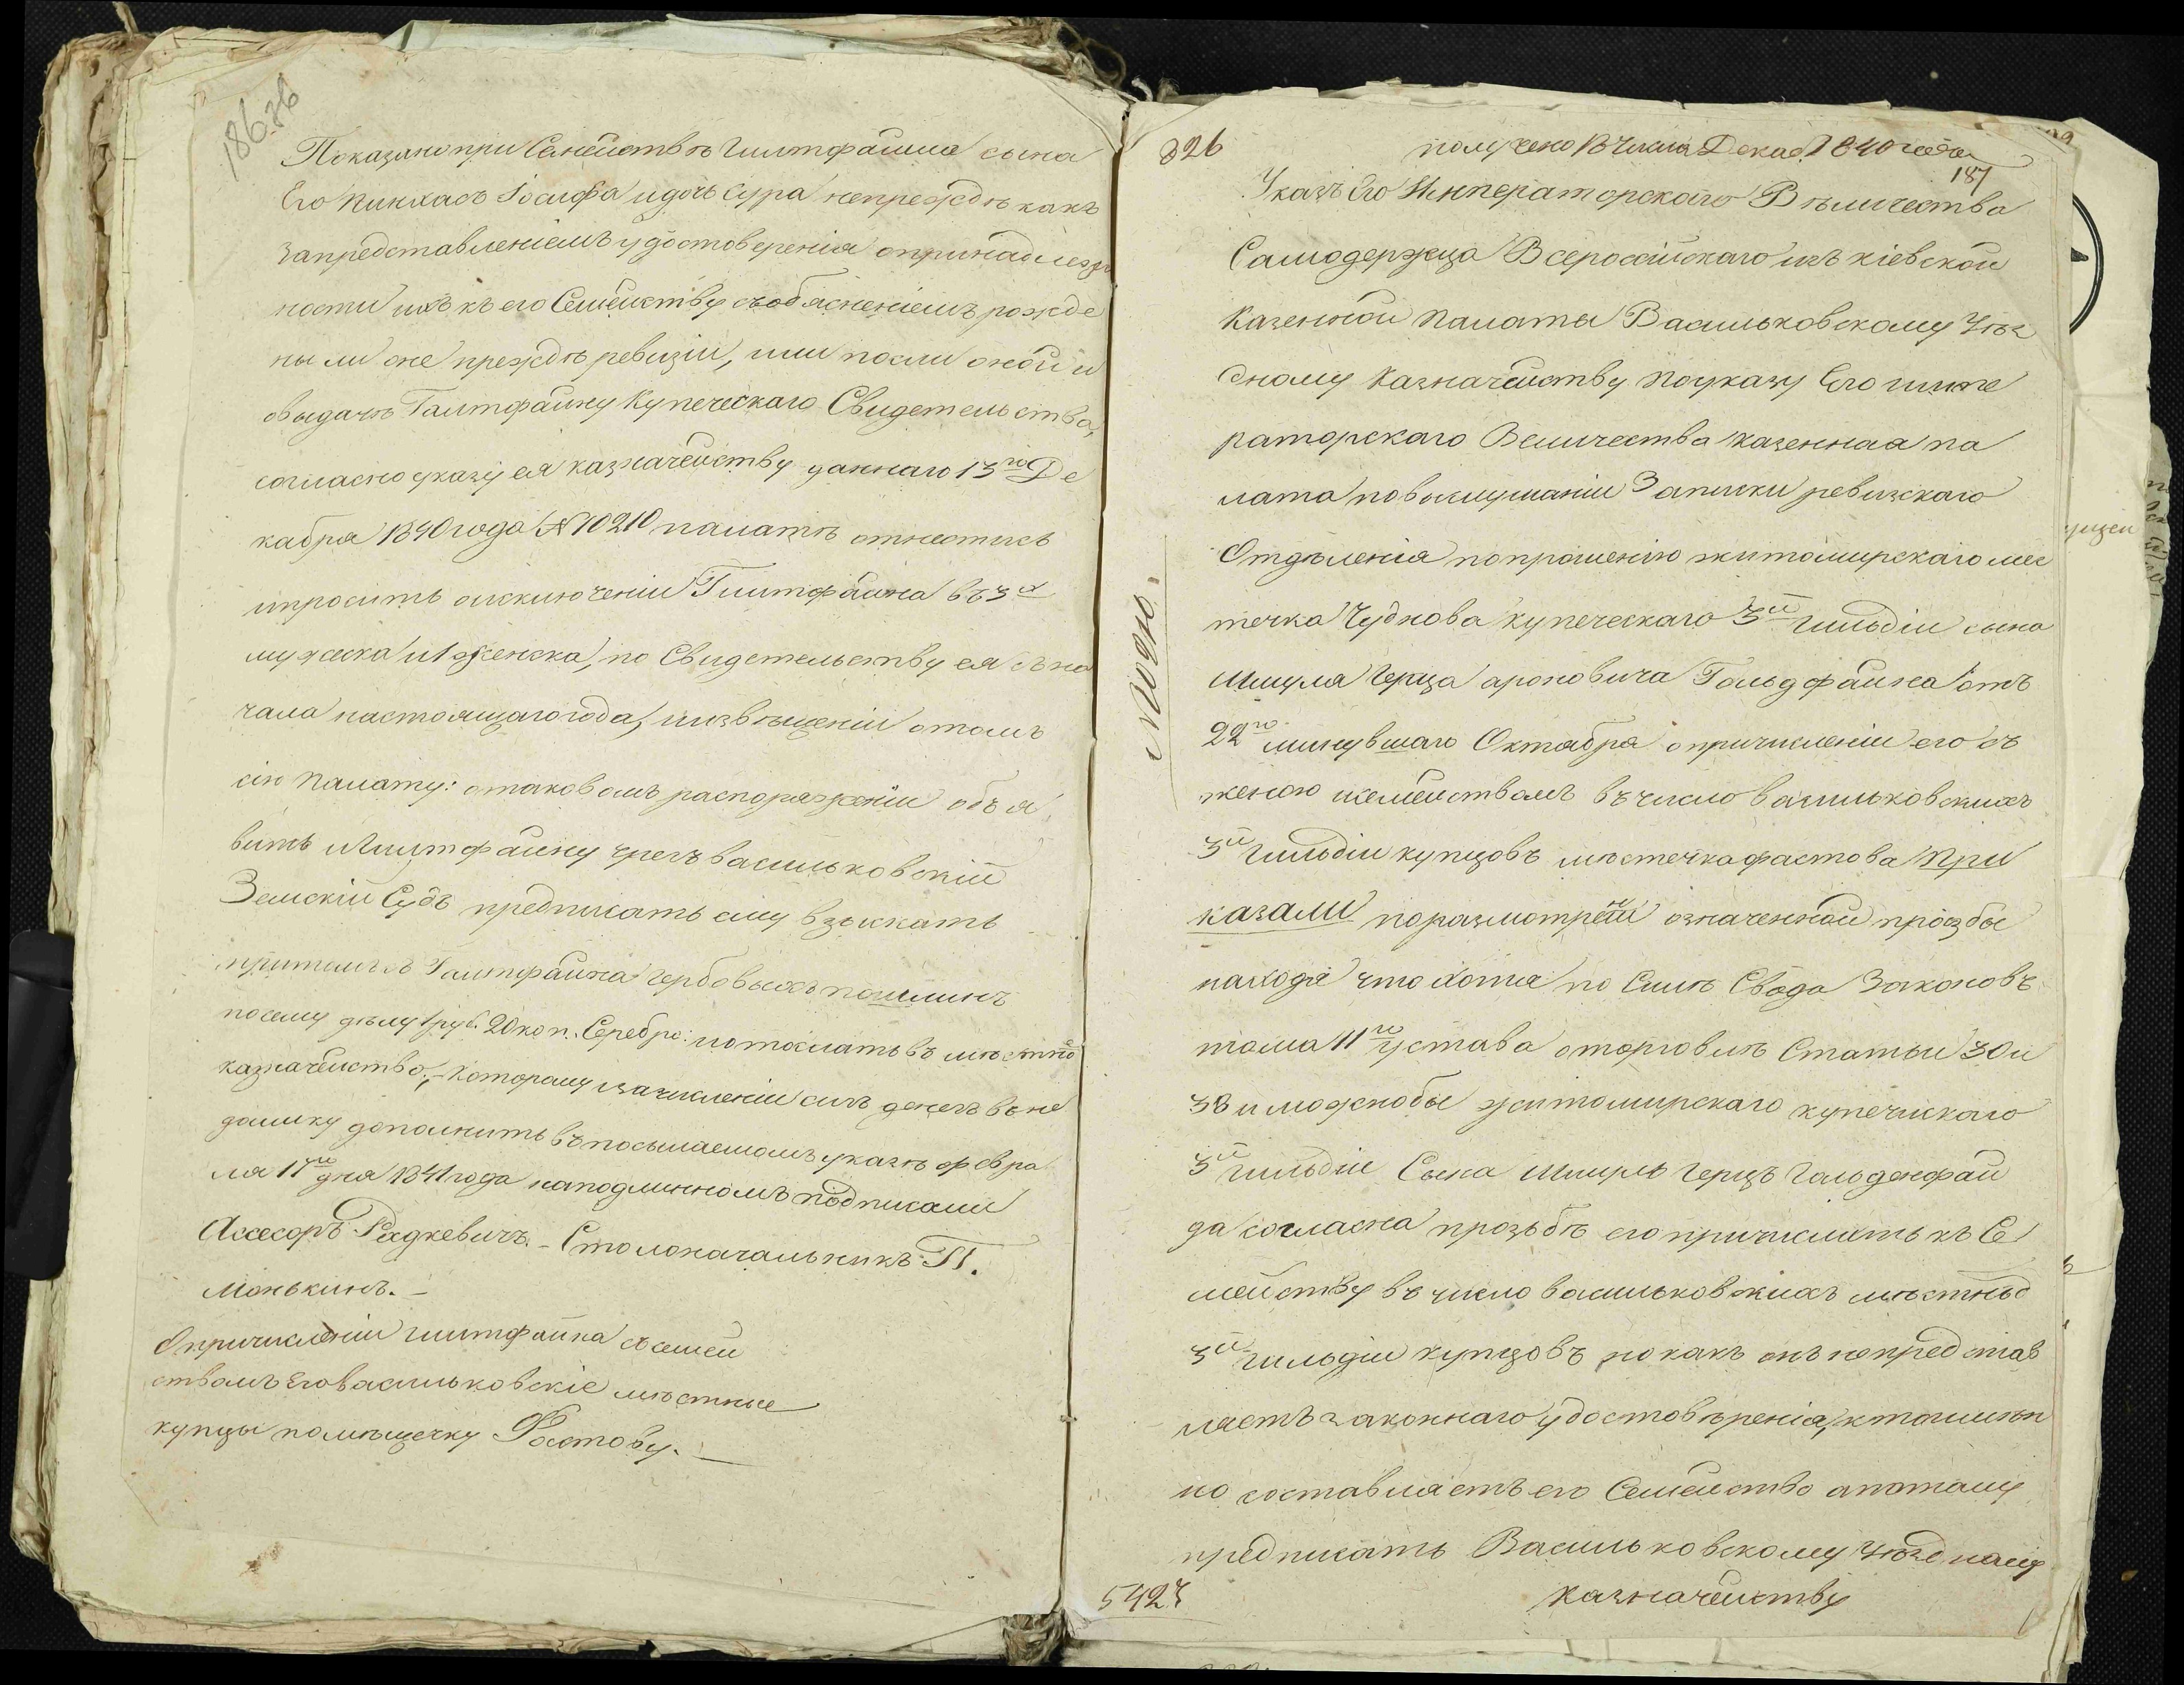 186. зв
Показано при Семействъ Гилтфаина сына
Его Пинхасъ Іосифа и дочь Сура не преждъ какъ
запредставленіемъ удостоверенія опринадлеж
ности ихъ къ его Семейству собясненіемъ рожде
ны ли оне преждъ ревизіи, или посли оной и
овыдачъ Галтфаину Купеческаго Свидетельства,
согласно указу ея казначейству даннаго 13го Де
кабря 1840 года № 10210 палатъ отнестись
ипросить оисключеніи Гилтфаина въ 3х
мужеска и 1 женска, по Свидетельству ея съ на
чала настоящаго года, иизвъщеніи отомъ
сію Палату: отаковомъ распоряженіи объя
вить Гилтфаину чрезъ васильковскій
Земскій Судъ предписать ему взыскать
притомъ съ Галтфаина гербовыхъ пошлинъ
посему дълу 1 руб. 20 коп. Серебро: и отослать въ мъстно
казначейство,- которому изачисленіи сихъ денегъ въ не
доимку дополнить въ посылаемомъ указъ февра
ля 17го дня 1841 года наподлинномъ подписали
Ассесоръ Радкевичъ. - Столоначальникъ П.
Монькинъ. -
Опричисленіи гилтфаина съ семей
ствомъ Его васильковскіе мъстные
купцы помъщечку Фастову. -
326
получено 13 Числа Декаб. 1840 года
187
Указъ Его Императорскаго Въличества
Самодержца Всеросійскаго изъ кіевской
Казенной Палаты Васильковскому Уъз
дному Казначейству Поуказу Его импе
раторскаго Величества казенная па
лата повыслушаніи Записки ревизскаго
Отдъленія попрошенію житомирскаго мес
течка Чуднова купеческаго 3й гильдіи сына
Шмуля Герца ароновича Гольдфаина отъ
22го минувшаго Октября опричисленіи его съ
женою исемействомъ въ число васильковскихъ
3й гильдіи купцовъ мъстечка фастова При
казали поразмотреніи означенной прозбы
находя что хотя по Силъ Свода Законовъ
тома 11го устава оторговлъ Статьи 30 и
38 и можнобы житомирскаго купеческаго
3й гильдіи Сына Шмуль Герцъ Гольденфай
да согласна прозьбъ его причислить къ Се
мейству въ число васильковскихъ мъстныъ
3й гильдіи купцовъ но какъ онъ непредстав
ляетъ законнаго удостовъренія, ктоимен
но составляетъ его Семейство апотому
предписать Васильковскому Уъздному
5423
казначейству